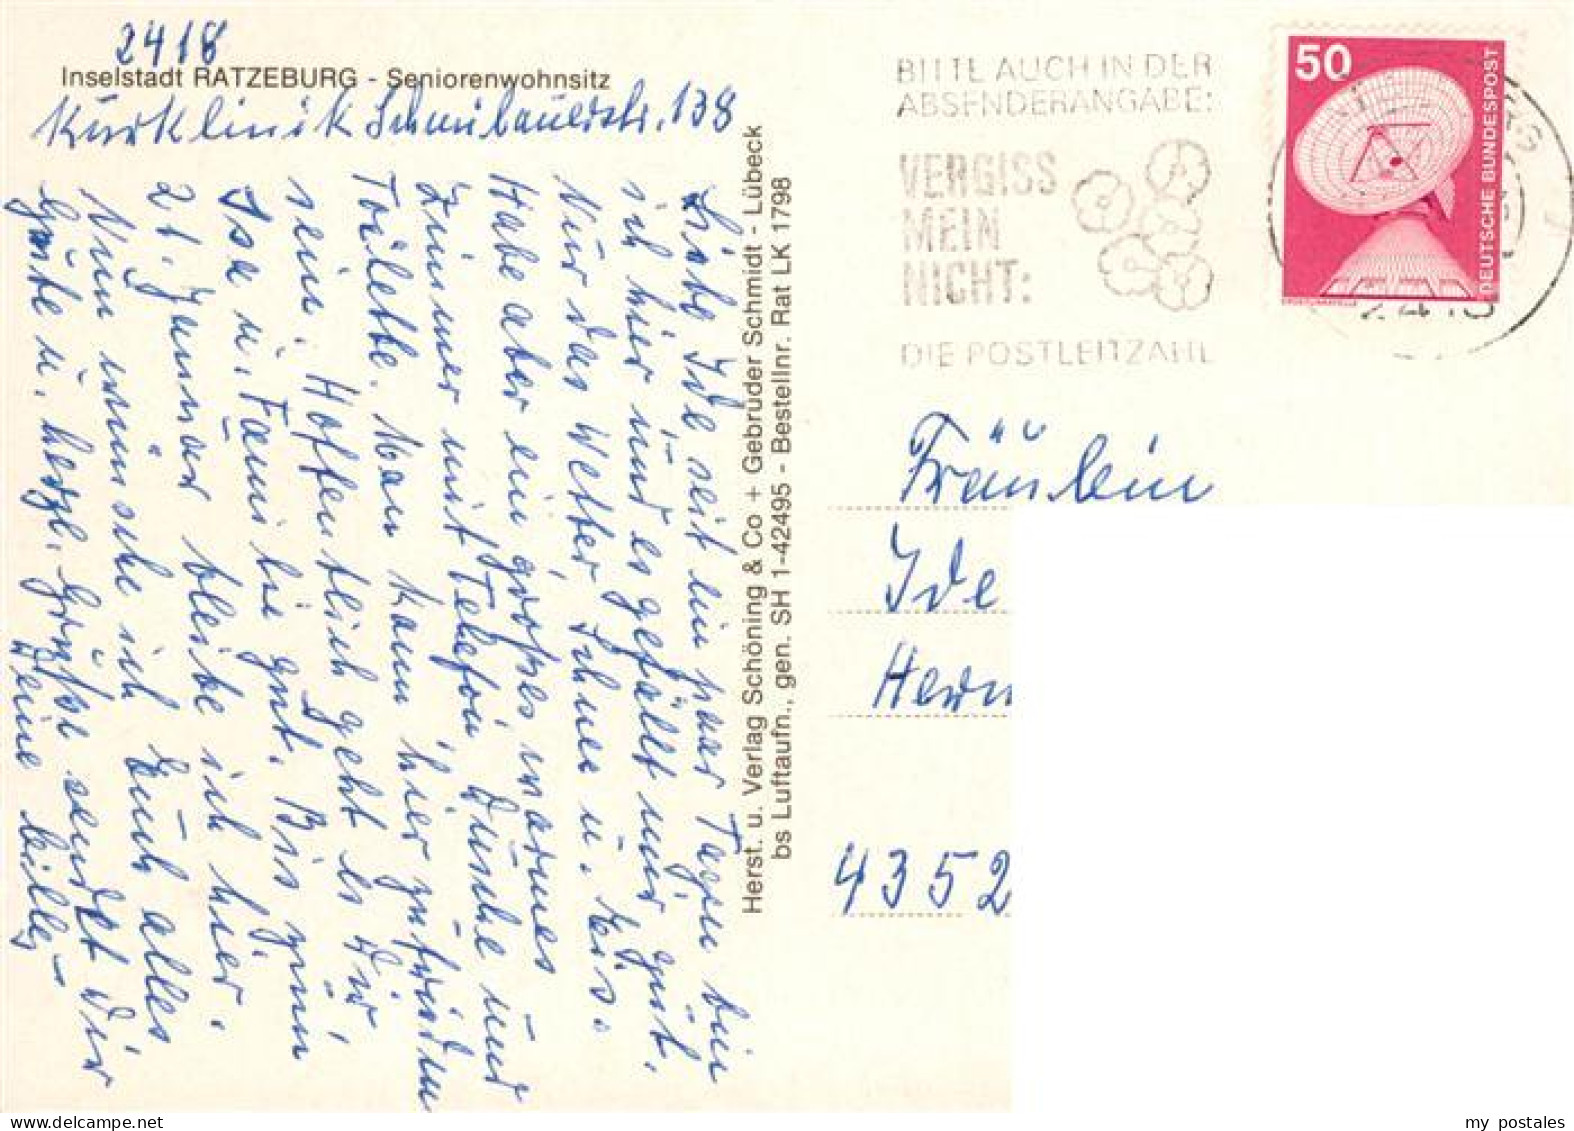 2418
Inselstadt RATZEBURG - Seniorenwohnsitz
Kurklinik Schmilauerstr. 138
Liebe Ide seit ein paar Tagen bin
ich hier und es gefällt mir gut.
Nur das Wetter, Schnee u. Eis.
Habe aber ein großes warmes
Zimmer mit Telefon, Dusche und
Toilette. Man kann hier zufrieden
sein. Hoffentlich geht es Dir,
Isa u. Familie gut. Bis zum
21. Januar bleibe ich hier.
Nun wünsche ich Euch alles
Gute u. herzl. Grüße sendet Dir
Deine
Herst. u. Verlag Schöning & Co + Gebrüder Schmidt - Lübeck
bs Luftaufn., gen. SH 1-42495 - Bestellnr. Rat LK 1798
BITTE AUCH IN DER
ABSENDERANGABE:
VERGISS
MEIN
NICHT:
DIE POSTLEITZAHL
50
DEUTSCHE BUNDESPOST
2418
Fräulein
Ide
Herm
4352
my postales